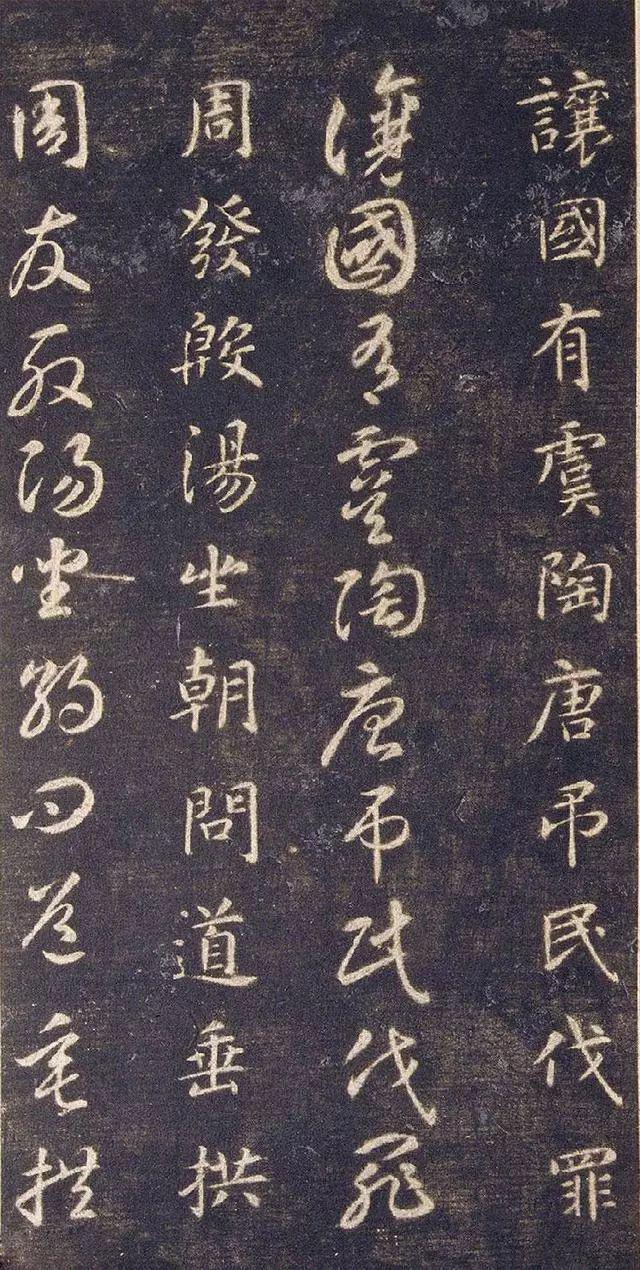 讓國有虞陶唐吊民伐罪
讓國有虞陶唐吊民伐罪
周發殷湯坐朝問道垂拱
周發殷湯坐朝問道垂拱